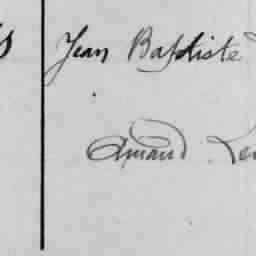 Jean Baptiste
Amand